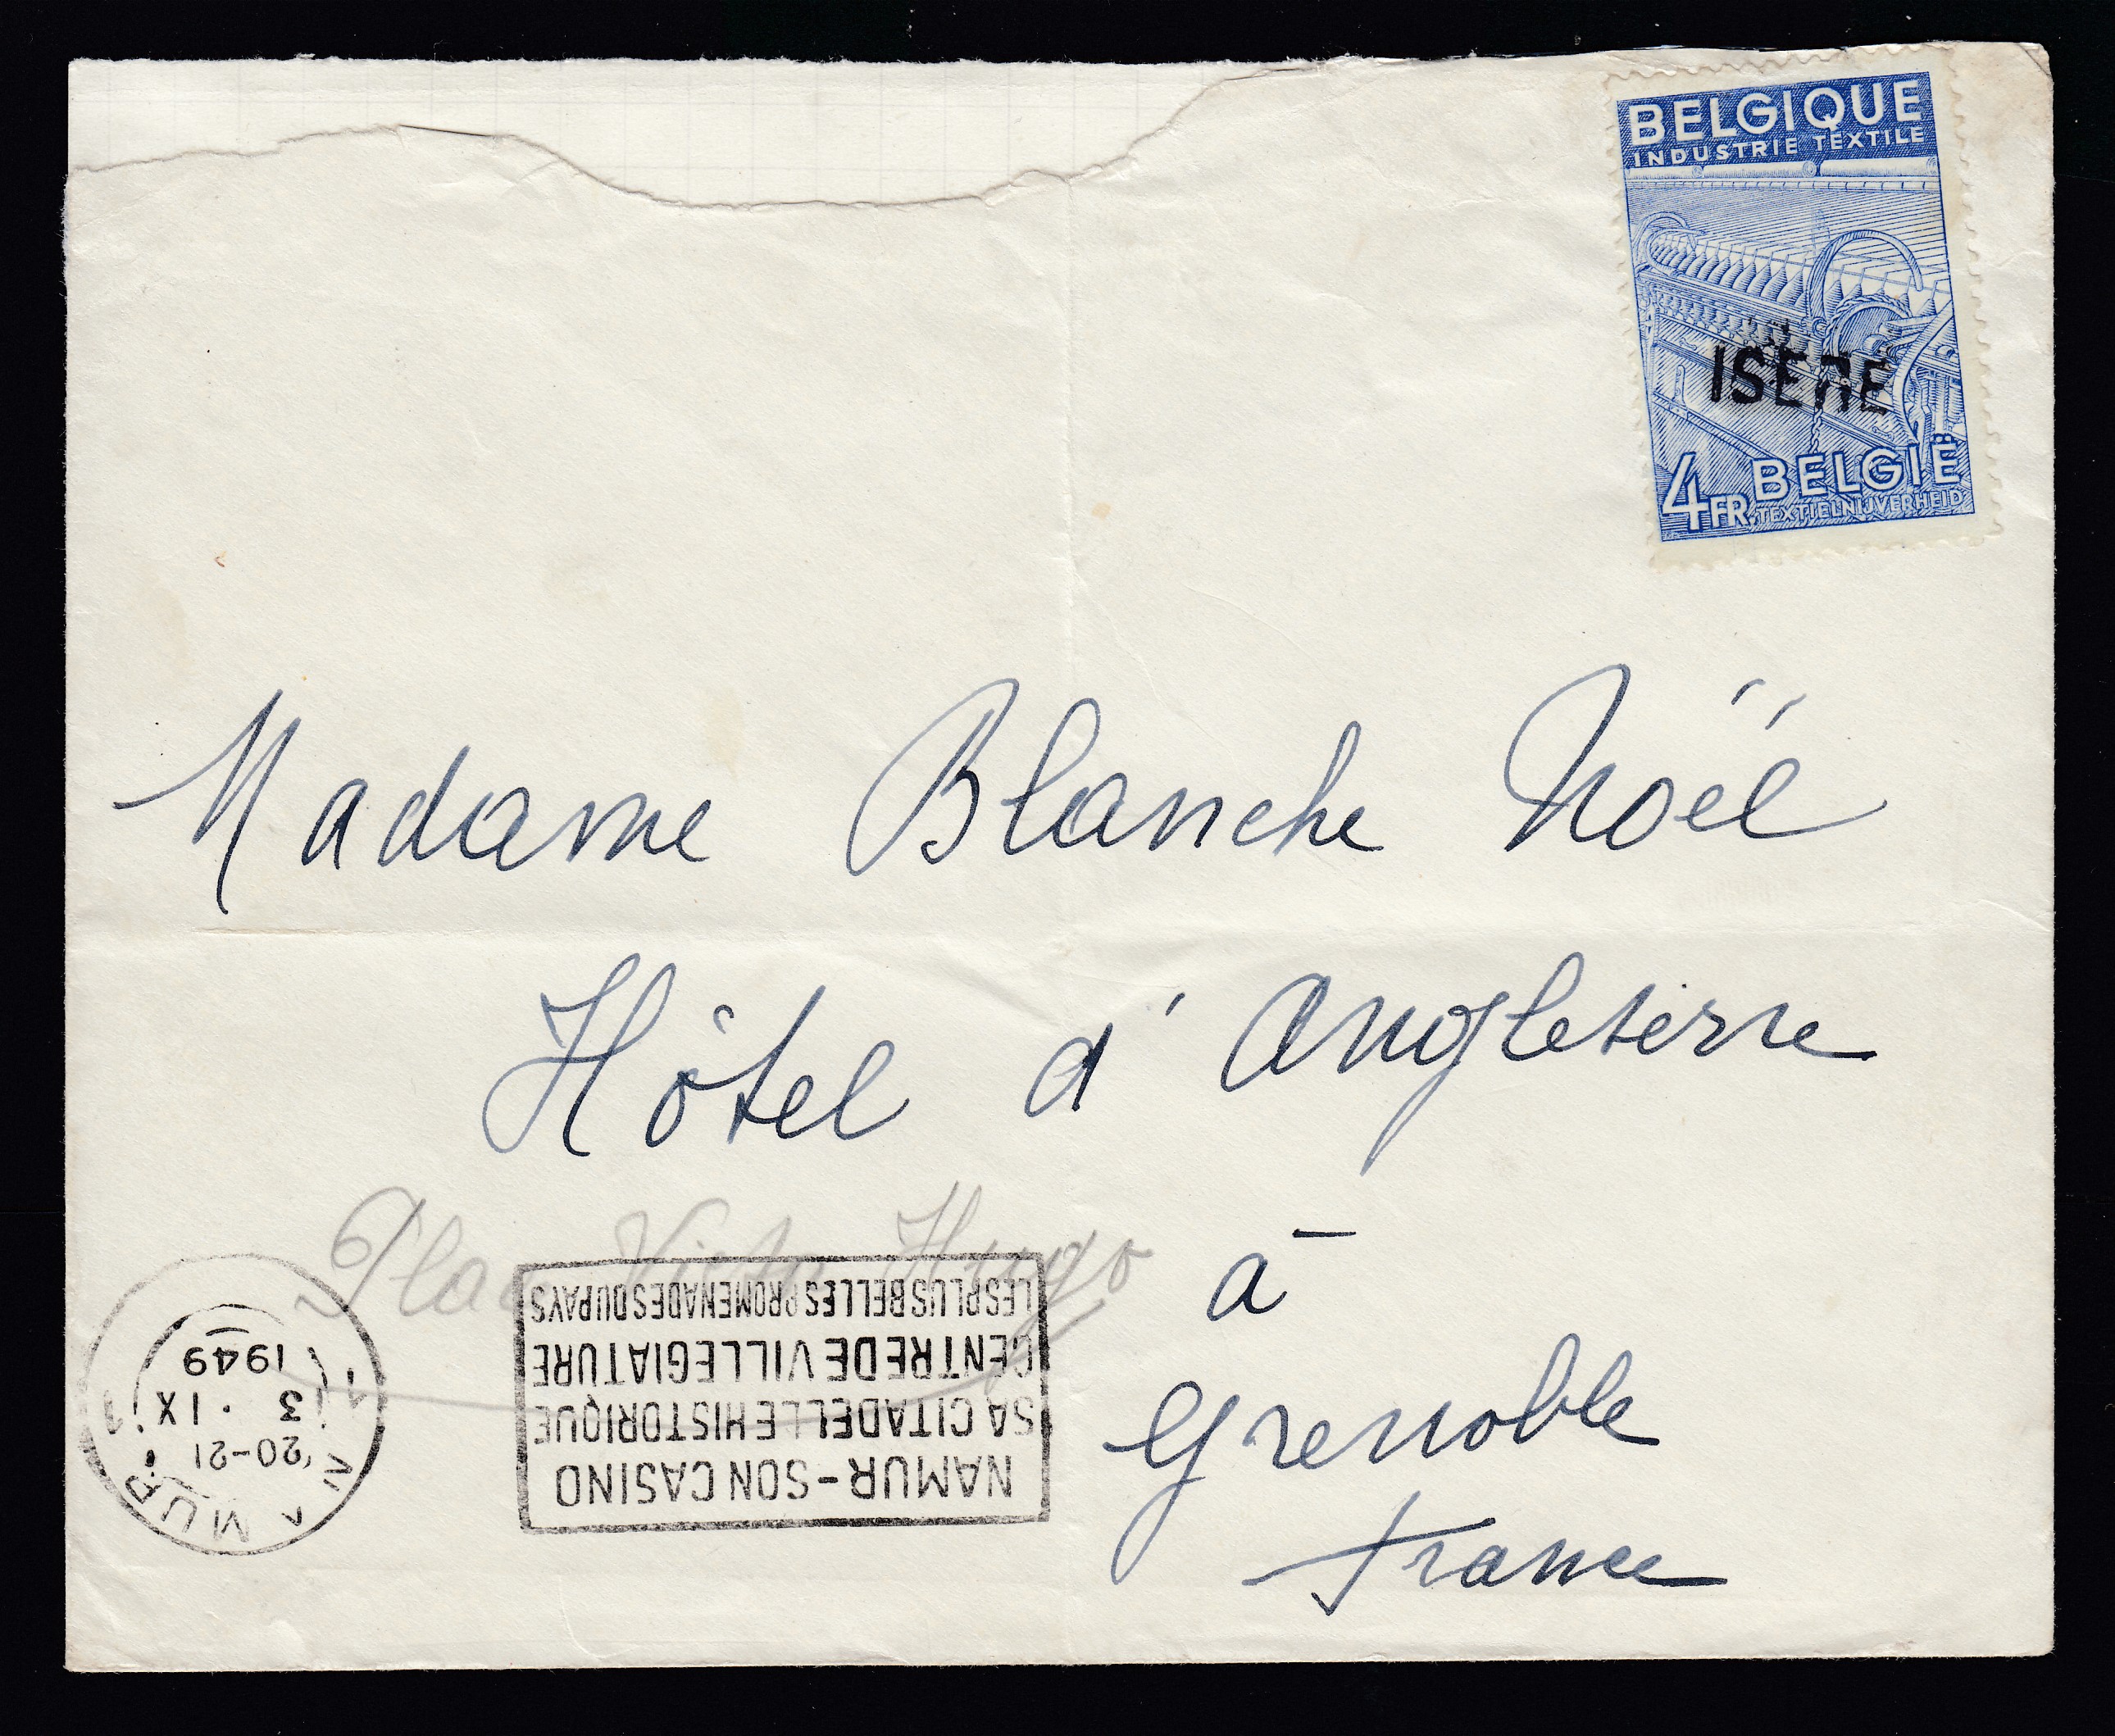 BELGIQUE
INDUSTRIE TEXTILE
ISÈRE
4FR. BELGIË
TEXTIELNIJVERHEID
Madame Blanche Noël
Hôtel d'Angleterre
Place Victor Hugo
à
Grenoble
France
NAMUR 1
20-21
3 . IX
1949
NAMUR-SON CASINO
SA CITADELLE HISTORIQUE
CENTRE DE VILLEGIATURE
LES PLUS BELLES PROMENADES DU PAYS